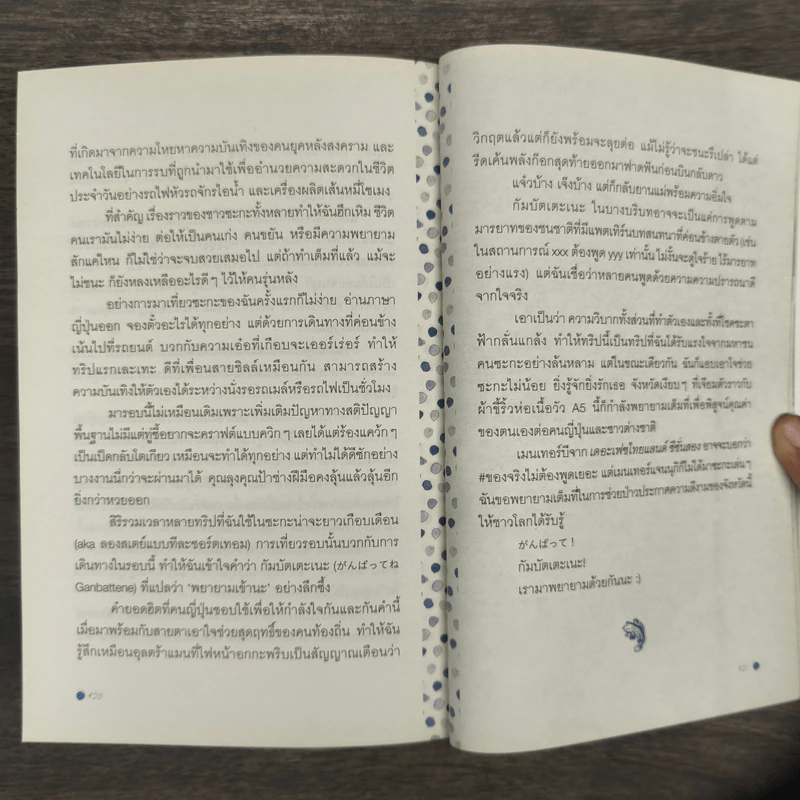 ที่เกิดมาจากความโหยหาความบันเทิงของคนยุคหลังสงคราม และ
เทคโนโลยีในการรบที่ถูกนำมาใช้เพื่ออำนวยความสะดวกในชีวิต
ประจำวันอย่างรถไฟหัวรถจักรไอน้ำ และเครื่องผลิตเส้นหมี่โซเมง
ที่สำคัญ เรื่องราวของชาวซะกะทั้งหลายทำให้ฉันฮึกเหิม ชีวิต
คนเรามันไม่ง่าย ต่อให้เป็นคนเก่ง คนขยัน หรือมีความพยายาม
สักแค่ไหน ก็ไม่ใช่ว่าจะจบสวยเสมอไป แต่ถ้าทำเต็มที่แล้ว แม้จะ
ไม่ชนะ ก็ยังหลงเหลืออะไรดีๆ ไว้ให้คนรุ่นหลัง
อย่างการมาเที่ยวซะกะของฉันครั้งแรกก็ไม่ง่าย อ่านภาษา
ญี่ปุ่นออก จองตั๋วอะไรได้ทุกอย่าง แต่ด้วยการเดินทางที่ค่อนข้าง
เน้นไปที่รถยนต์ บวกกับความเอ๋อที่เกือบจะเออร์เร่อร์ ทำให้
ทริปแรกเละเทะ ดีที่เพื่อนสายชิลล์เหมือนกัน สามารถสร้าง
ความบันเทิงให้ตัวเองได้ระหว่างนั่งรอรถเมล์หรือรถไฟเป็นชั่วโมง
มารอบนี้ไม่เหมือนเดิมเพราะเพิ่มเติมปัญหาทางสติปัญญา
พื้นฐานไม่มีแต่ทู่ซี้อยากจะคราฟต์แบบควิกๆ เลยได้แต่ร้องแคว้กๆ
เป็นเป็ดกลับโตเกียว เหมือนจะทำได้ทุกอย่าง แต่ทำไม่ได้ดีซักอย่าง
บางงานนี่กว่าจะผ่านมาได้ คุณลุงคุณป้าช่างฝีมือคงลุ้นแล้วลุ้นอีก
ยิ่งกว่าหวยออก
สิริรวมเวลาหลายทริปที่ฉันใช้ในซะกะน่าจะยาวเกือบเดือน
(aka ลองสเตย์แบบทีละชอร์ตเทอม) การเที่ยวรอบนั้นบวกกับการ
เดินทางในรอบนี้ ทำให้ฉันเข้าใจคำว่า กัมบัตเตะเนะ (がんばってね
Ganbattene) ที่แปลว่า ‘พยายามเข้านะ’ อย่างลึกซึ้ง
คำยอดฮิตที่คนญี่ปุ่นชอบใช้เพื่อให้กำลังใจกันและกันคำนี้
เมื่อมาพร้อมกับสายตาเอาใจช่วยสุดฤทธิ์ของคนท้องถิ่น ทำให้ฉัน
รู้สึกเหมือนอุลตร้าแมนที่ไฟหน้าอกกะพริบเป็นสัญญาณเตือนว่า
วิกฤตแล้วแต่ก็ยังพร้อมจะลุยต่อ แม้ไม่รู้ว่าจะชนะรึเปล่า ได้แต่
รีดเค้นพลังก๊อกสุดท้ายออกมาฟาดฟันก่อนบินกลับดาว
แจ๋วบ้าง เจ๊งบ้าง แต่ก็กลับยานแม่พร้อมความอิ่มใจ
กัมบัตเตะเนะ ในบางบริบทอาจจะเป็นแค่การพูดตาม
มารยาทของชนชาติที่มีแพตเทิร์นบทสนทนาที่ค่อนข้างตายตัว (เช่น
ในสถานการณ์ xxx ต้องพูด yyy เท่านั้น ไม่งั้นจะดูใจร้าย ไร้มารยาท
อย่างแรง) แต่ฉันเชื่อว่าหลายคนพูดด้วยความความปรารถนาดี
จากใจจริง
เอาเป็นว่า ความวิบากทั้งส่วนที่ทำตัวเองและทั้งที่โชคชะตา
ฟ้ากลั่นแกล้ง ทำให้ทริปนี้เป็นทริปที่ฉันได้รับแรงใจจากมหาชน
คนซะกะอย่างล้นหลาม แต่ในขณะเดียวกัน ฉันก็แอบเอาใจช่วย
ซะกะไม่น้อย ยิ่งรู้จักยิ่งรักเธอ จังหวัดเงียบๆ ที่เจียมตัวราวกับ
ผ้าขี้ริ้วห่อเนื้อวัว A5 นี้ก็กำลังพยายามเต็มที่เพื่อพิสูจน์คุณค่า
ของตนเองต่อคนญี่ปุ่นและชาวต่างชาติ
เมนเทอร์บีจาก เดอะเฟซไทยแลนด์ ซีซั่นสอง อาจจะบอกว่า
#ของจริงไม่ต้องพูดเยอะ แต่เมนเทอร์แจนนุกิก็ไม่ได้มาซะกะเล่นๆ
ฉันขอพยายามเต็มที่ในการช่วยป่าวประกาศความดีงามของจังหวัดนี้
ให้ชาวโลกได้รับรู้
がんばって!
กัมบัตเตะเนะ!
เรามาพยายามด้วยกันนะ :)